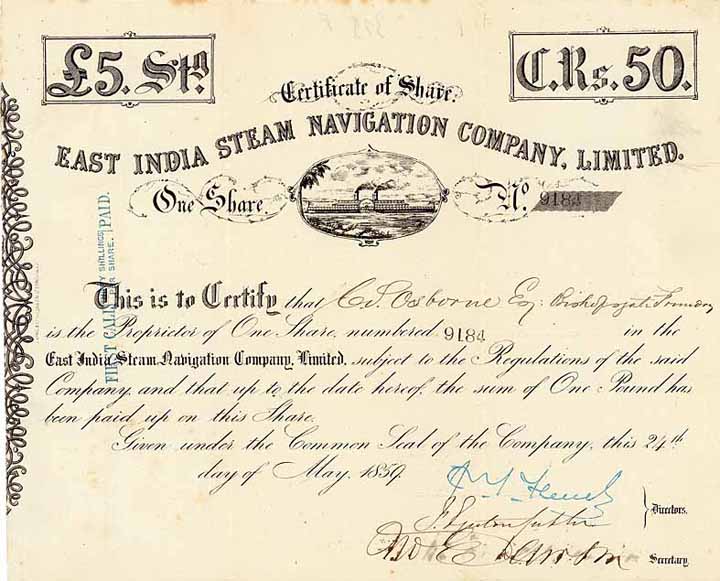 £5. Stg.
C.Rs. 50.
Certificate of Share.
EAST INDIA STEAM NAVIGATION COMPANY, LIMITED.
One Share
No. 9184
FIRST CALL SHILLINGS PER SHARE. PAID.
This is to Certify that C. Osborne Esq: Bishopsgate Foundry
is the Proprietor of One Share, numbered 9184 in the
East India Steam Navigation Company, Limited, subject to the Regulations of the said
Company, and that up to the date hereof, the sum of One Pound has
been paid up on this Share.
Given under the Common Seal of the Company, this 24th
day of May, 1859.
Directors.
Secretary.